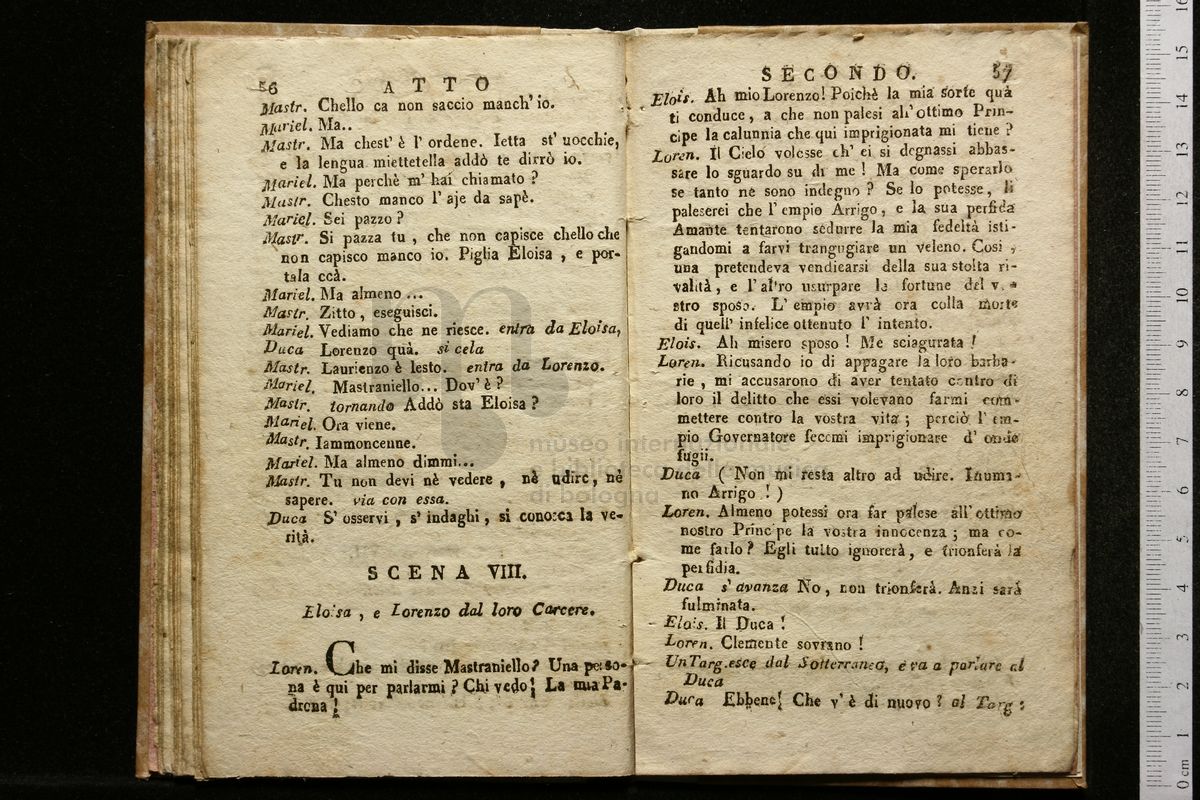 56 ATTO
Mastr. Chello ca non saccio manch' io.
Mariel. Ma..
Mastr. Ma chest' è l' ordene. Ietta st' uocchie,
e la lengua miettetella addò te dirrò io.
Mariel. Ma perchè m' hai chiamato ?
Mastr. Chesto manco l' aje da sapè.
Mariel. Sei pazzo ?
Mastr. Si pazza tu , che non capisce chello che
non capisco manco io. Piglia Eloisa , e por-
tala ccà.
Mariel. Ma almeno ...
Mastr. Zitto , eseguisci.
Mariel. Vediamo che ne riesce. entra da Eloisa,
Duca Lorenzo quà. si cela
Mastr. Laurienzo è lesto. entra da Lorenzo.
Mariel. Mastraniello... Dov' è ?
Mastr. tornando Addò sta Eloisa ?
Mariel. Ora viene.
Mastr. Iammoncenne.
Mariel. Ma almeno dimmi...
Mastr. Tu non devi nè vedere , nè udire, nè
sapere. via con essa.
Duca S' osservi , s' indaghi , si conosca la ve-
rità.
SCENA VIII.
Eloisa , e Lorenzo dal loro Carcere.
Loren. Che mi disse Mastraniello? Una perso-
na è qui per parlarmi ? Chi vedo! La mia Pa-
drona !
SECONDO. 57
Elois. Ah mio Lorenzo! Poichè la mia sorte quà
ti conduce , a che non palesi all' ottimo Prin-
cipe la calunnia che qui imprigionata mi tiene ?
Loren. Il Cielo volesse ch' ei si degnassi abbas-
sare lo sguardo su di me ! Ma come sperarlo
se tanto ne sono indegno ? Se lo potesse, li
paleserei che l' empio Arrigo, e la sua perfida
Amante tentarono sedurre la mia fedeltà isti-
gandomi a farvi trangugiare un veleno. Così ,
una pretendeva vendicarsi della sua stolta ri-
valità, e l' altro usurpare le fortune del vo-
stro sposo. L' empio avrà ora colla morte
di quell' infelice ottenuto l' intento.
Elois. Ah misero sposo ! Me sciagurata !
Loren. Ricusando io di appagare la loro barba-
rie , mi accusarono di aver tentato contro di
loro il delitto che essi volevano farmi com-
mettere contro la vostra vita ; perciò l' em-
pio Governatore fecemi imprigionare d' onde
fugii.
Duca ( Non mi resta altro ad udire. Inuma-
no Arrigo ! )
Loren. Almeno potessi ora far palese all' ottimo
nostro Principe la vostra innocenza ; ma co-
me farlo ? Egli tutto ignorerà, e trionferà la
perfidia.
Duca s' avanza No, non trionferà. Anzi sarà
fulminata.
Elois. Il Duca !
Loren. Clemente sovrano !
Un Targ. esce dal Sotterraneo, e va a parlare al
Duca
Duca Ebbene! Che v' è di nuovo ? al Targ:
museo internazionale
e biblioteca della musica
di bologna
0 cm 1 2 3 4 5 6 7 8 9 10 11 12 13 14 15 16